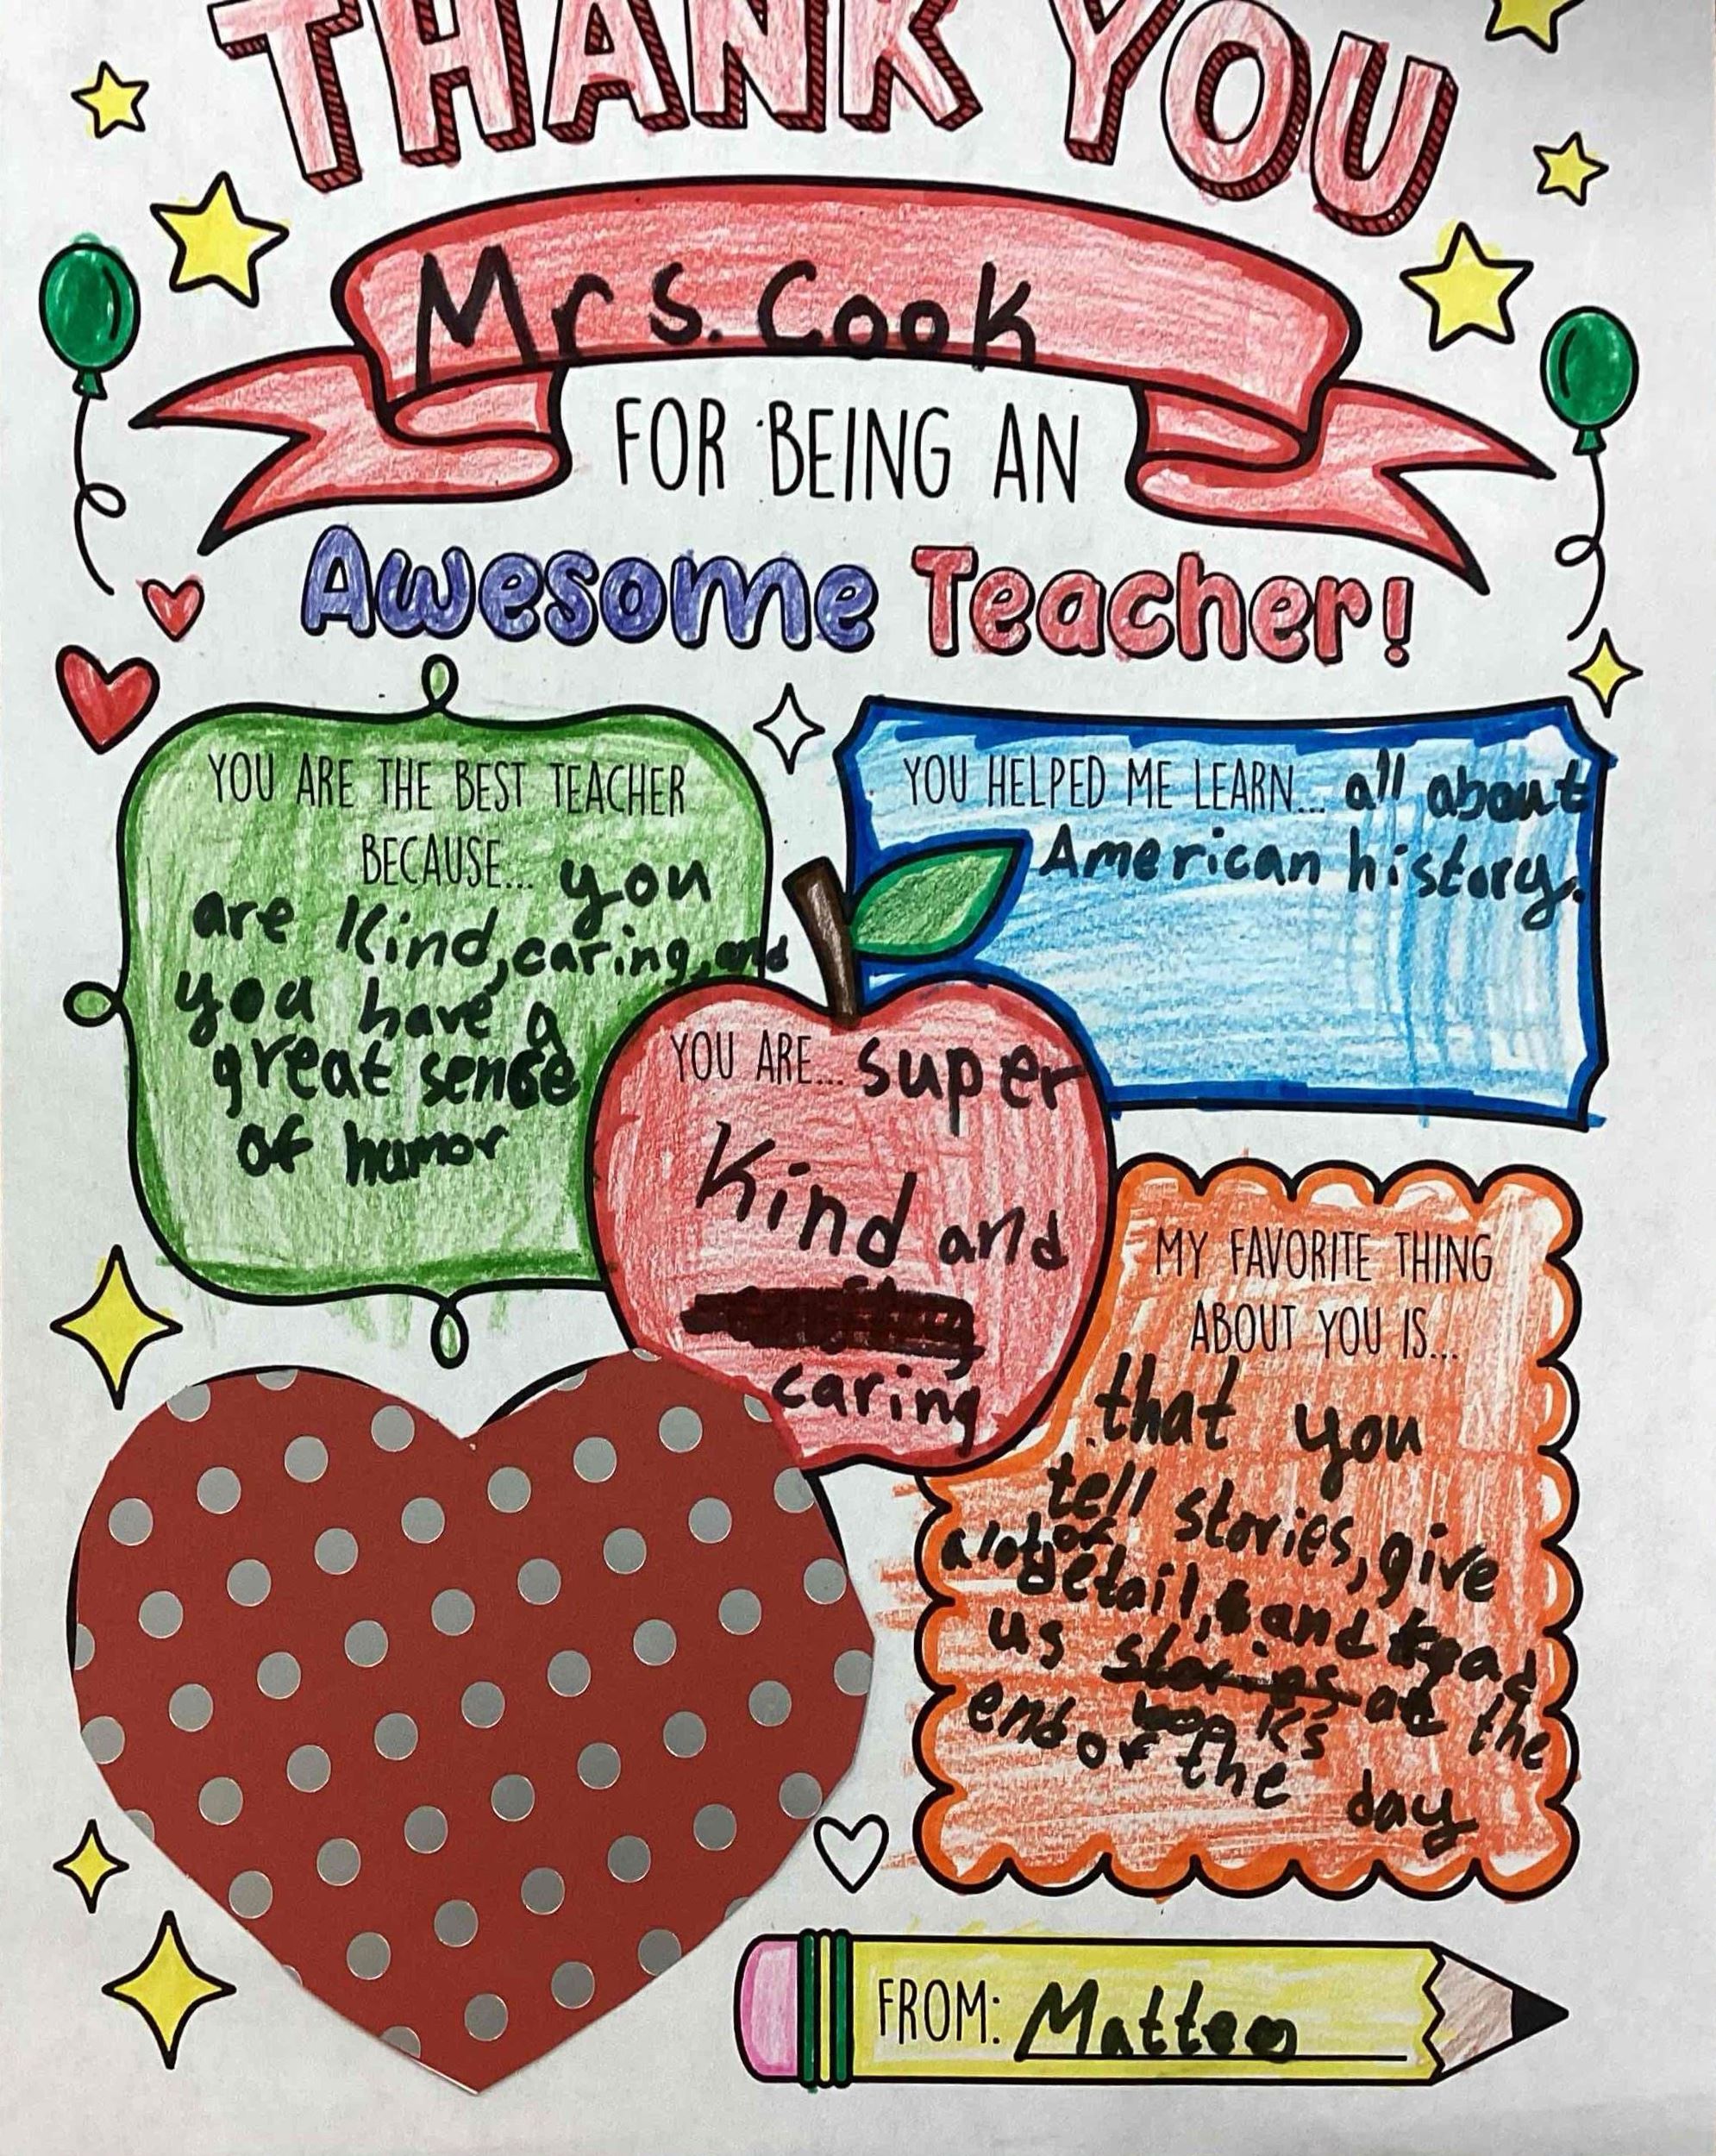 THANK YOU
Mrs. Cook
FOR BEING AN
Awesome Teacher!
YOU ARE THE BEST TEACHER
BECAUSE... you
are Kind, caring, and
you have a
great sense
of humor
YOU HELPED ME LEARN... all about
American history.
YOU ARE... super
Kind and
caring
MY FAVORITE THING
ABOUT YOU IS...
that you
tell stories, give
a lot of detail, and read
us stories books at the
end of the day
FROM: Matteo